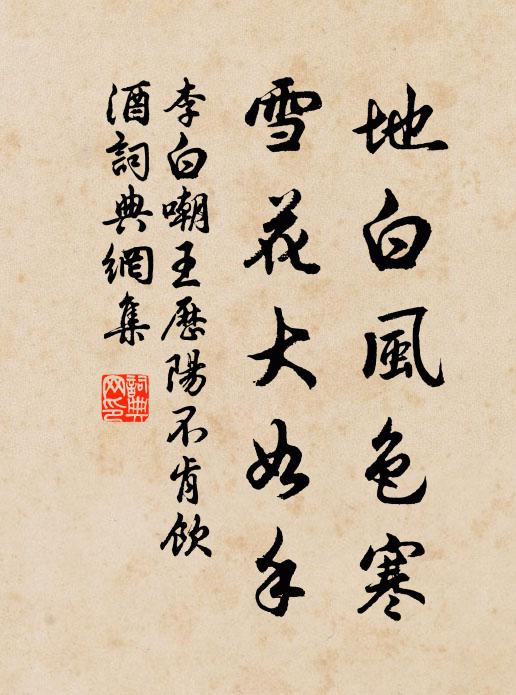 地白風色寒
雪花大如手
李白嘲王歷陽不肯飲
酒詞典網集
詞典
网印